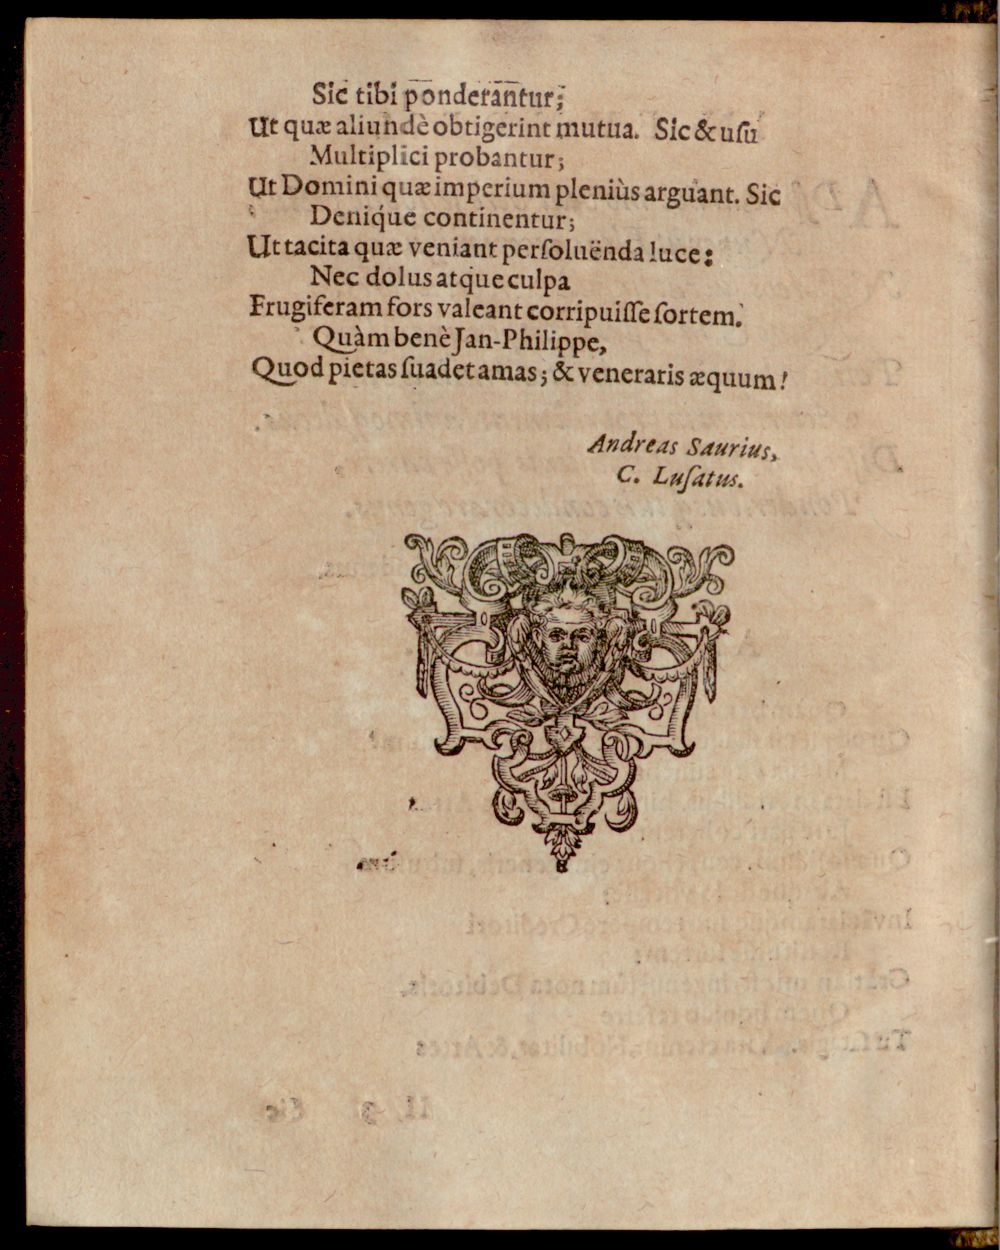 Sic tibi ponderantur;
Ut quæ aliundè obtigerint mutua. Sic & uſu
Multiplici probantur;
Ut Domini quæ imperium pleniùs arguant. Sic
Denique continentur;
Ut tacita quæ veniant perſoluënda luce:
Nec dolus atque culpa
Frugiferam fors valeant corripuiſſe ſortem.
Quàm benè Jan-Philippe,
Quod pietas ſuadet amas; & veneraris æquum!
Andreas Saurius,
C. Luſatus.